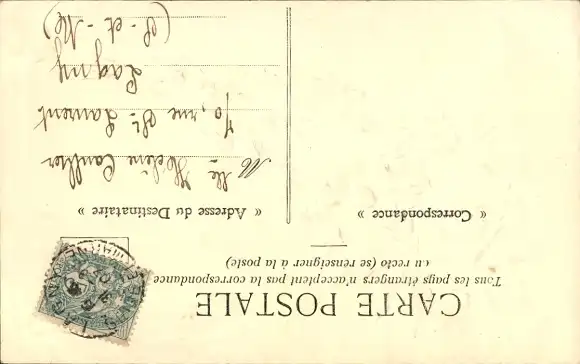 CARTE POSTALE
Tous les pays étrangers n'acceptent pas la correspondance
au recto (se renseigner à la poste)
« Correspondance »
« Adresse du Destinataire »
Mlle Hélène
70, rue St Laurent
Lagny
(S-et-Me)